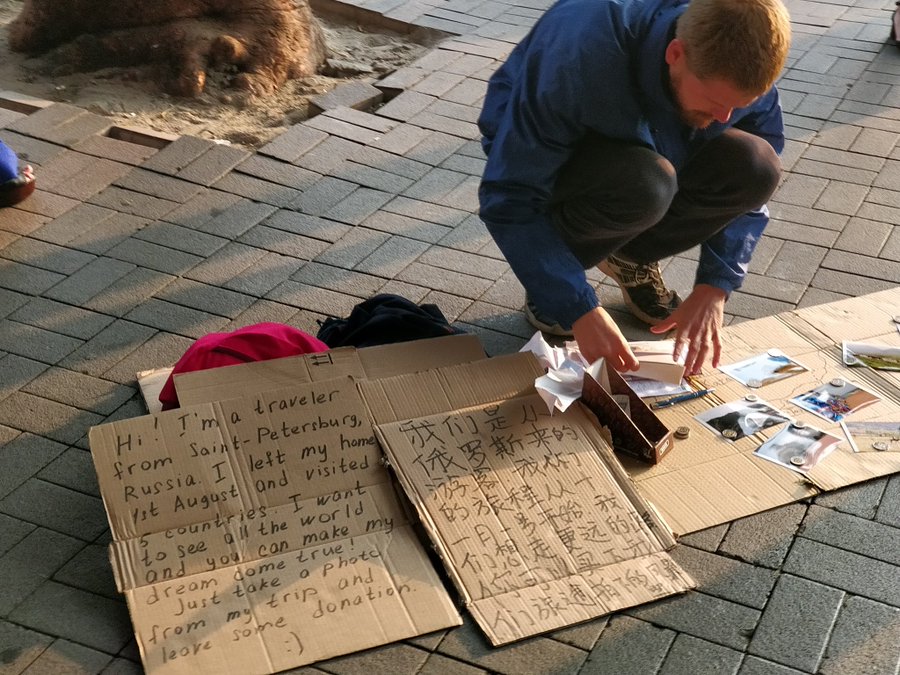 Hi! I'm a traveler
from Saint-Petersburg,
Russia. I left my home
1st August and visited
5 countries. I want
to see all the world
and you can make my
dream come true!
Just take a photo
from my trip and
leave some donation.
:)
我们是从
俄罗斯来的
游客 我们
的旅程从
月 号开始 我
们想走更远的
你可以
们旅途